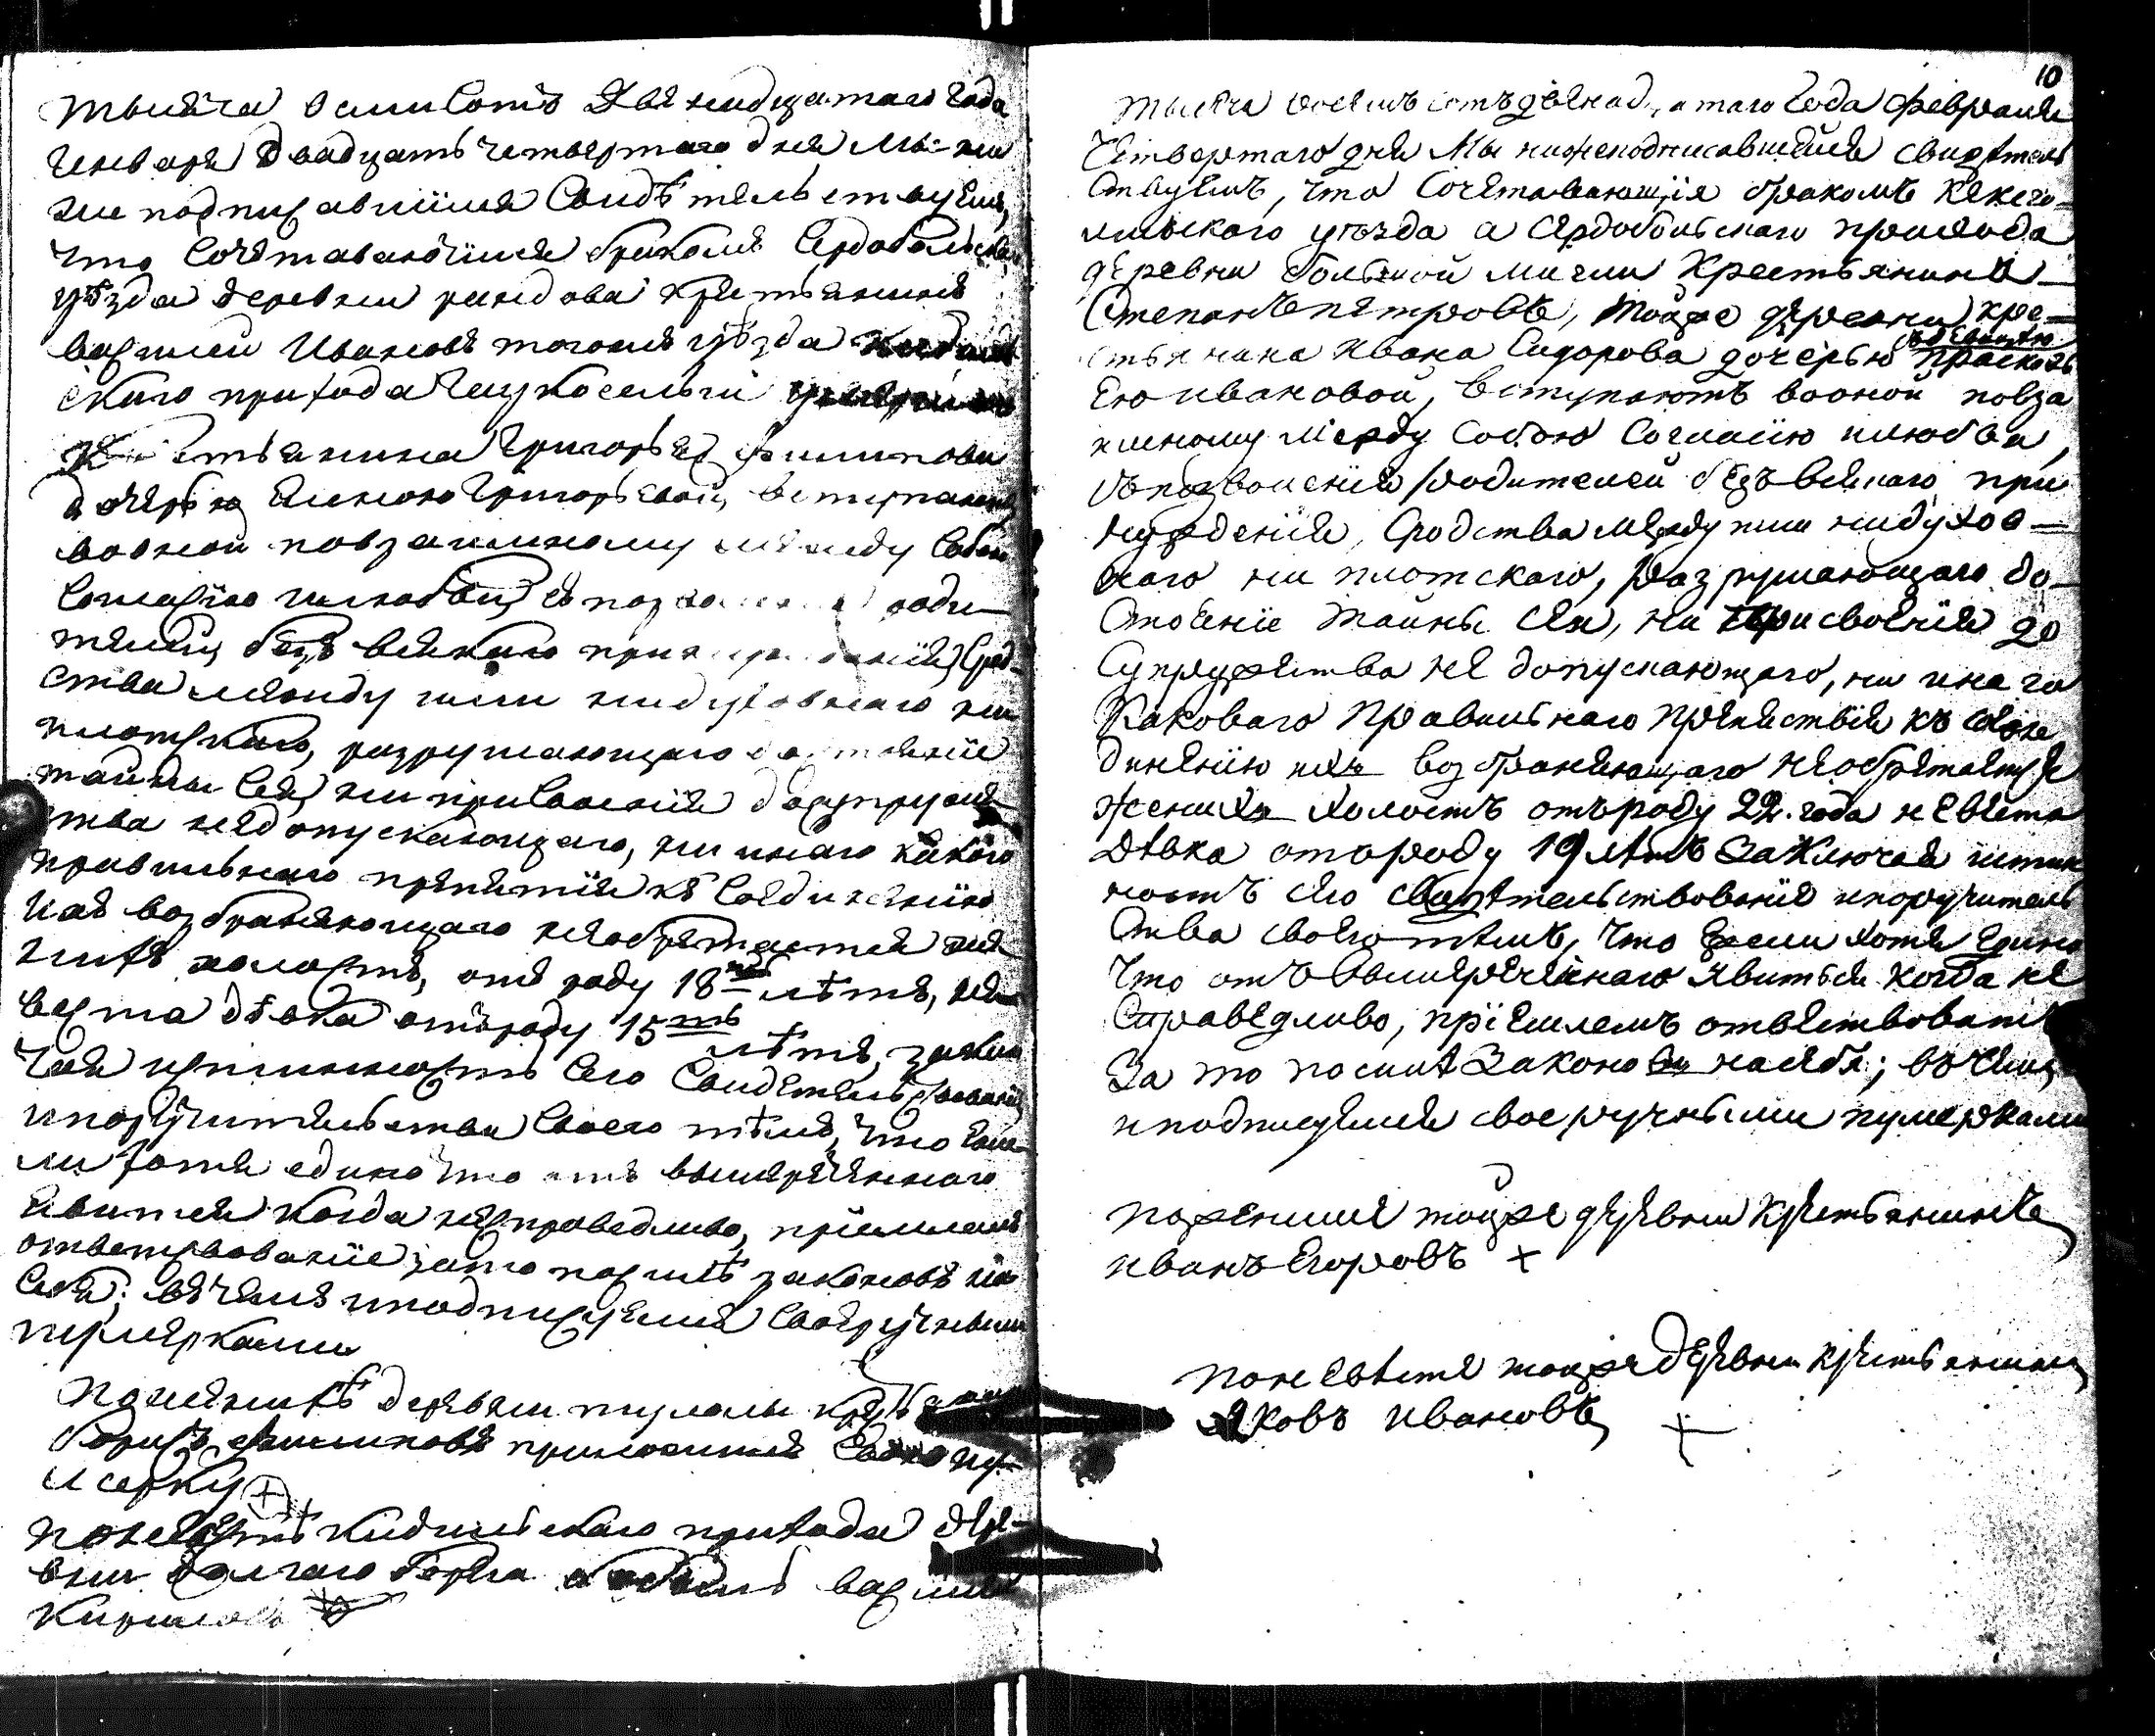 тысяча осмисотъ двенадцатаго года
генваря двадцать четвертаго дня мы ни
же подписавшиися свидѣтельствуемъ,
что сочетавающиися бракомъ Сердобольска
уѣзда деревни рандова крестьянинъ
василей Ивановъ тогожъ уѣзда
скаго прихода
крестьянина григорья филипова
дочерью Еленою григорьевой, вступаютъ
воной повзаимному между собою
согласїю илюбви съ позволенїя роди
телей безъ всякаго принужденїя, срод
ства между ими нидуховнаго ни
плотскаго, разрушающаго достоянїе
тайны сея, ни присвоенїя досупруже
ства недопускающаго, ни инаго какого
правильнаго препятїя къ соединенїю
ихъ возбраняющаго необретается же
нихъ холостъ, отъ роду 18 лѣтъ, не
веста дѣвка отъроду 15ть лѣтъ, заклю
чая истинность сего свидетельствованїя
ипоручительства своего тѣмъ, что еже
ли хотя едино что отъ вышереченнаго
явится когда несправедливо, прїимемъ
ответствованїе зато посилѣ законовъ на
себя; въчемъ иподписуемся своеручными
пумерками
поженихѣ деревни
борисъ филиповъ приложилъ свою пу
мерку +
поневестѣ кидильскаго прихода дере
вни василей
Кирилов
10
тысяча восемь сотъ двенадцатаго года февраля
Четвертаго дня Мы нижеподписавшийся свидѣтель
ствуемъ, что Сочетавающїя бракомъ Кексго
льмскаго уѣзда а Сердобольскаго прихода
деревни большой мигли Крестьянинъ
Степанъ петровъ, тойже деревни кре
стьянина Ивана Сидорова дочерью прасков
ею ивановой, вступаютъ воной повза
имному между собою согласїю илюбви,
съпозволенїя родителей безъ всякаго при
нужденїя, сродства между ими нидухов
наго ни плотскаго, разрушающаго до
стоенїе тайны сея, ни присвоенїя до
супружества не допускающаго, ни инаго
каковаго правильнаго препятствїя къ соеде
диненїю ихъ возбраняющаго необретается
женихъ холостъ отъроду 22. года невеста
дѣвка отъроду 19 лѣтъ Заключая истин
ность сего свидѣтельствованїя ипоручитель
ства своего тѣмъ, что ежели хотя едино
что отъ вышереченнаго явиться когда не
справедливо, прїемлемъ ответствовать
за то посилѣ законовъ насебя; въчемъ
иподписуемся своеручными пумерками
поженихе тойже деревни крестьянинъ
иванъ Егоровъ +
поневѣсте тойже деревни крестьянинъ
яковъ ивановъ +